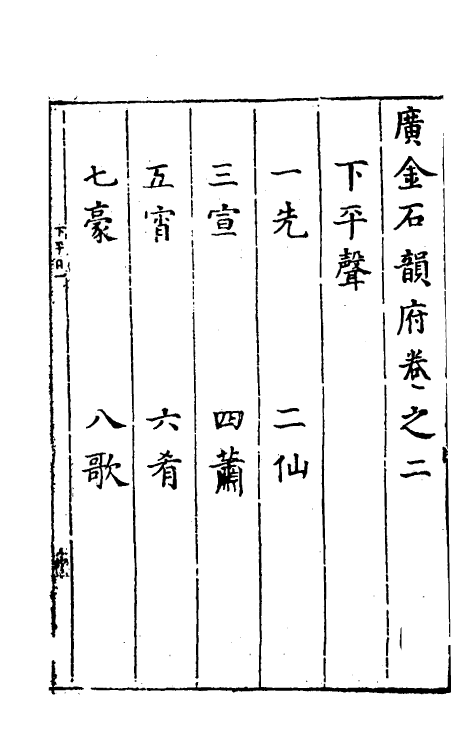 廣金石韻府卷之二
下平聲
一先 二仙
三宣 四蕭
五宵 六肴
七豪 八歌
下平